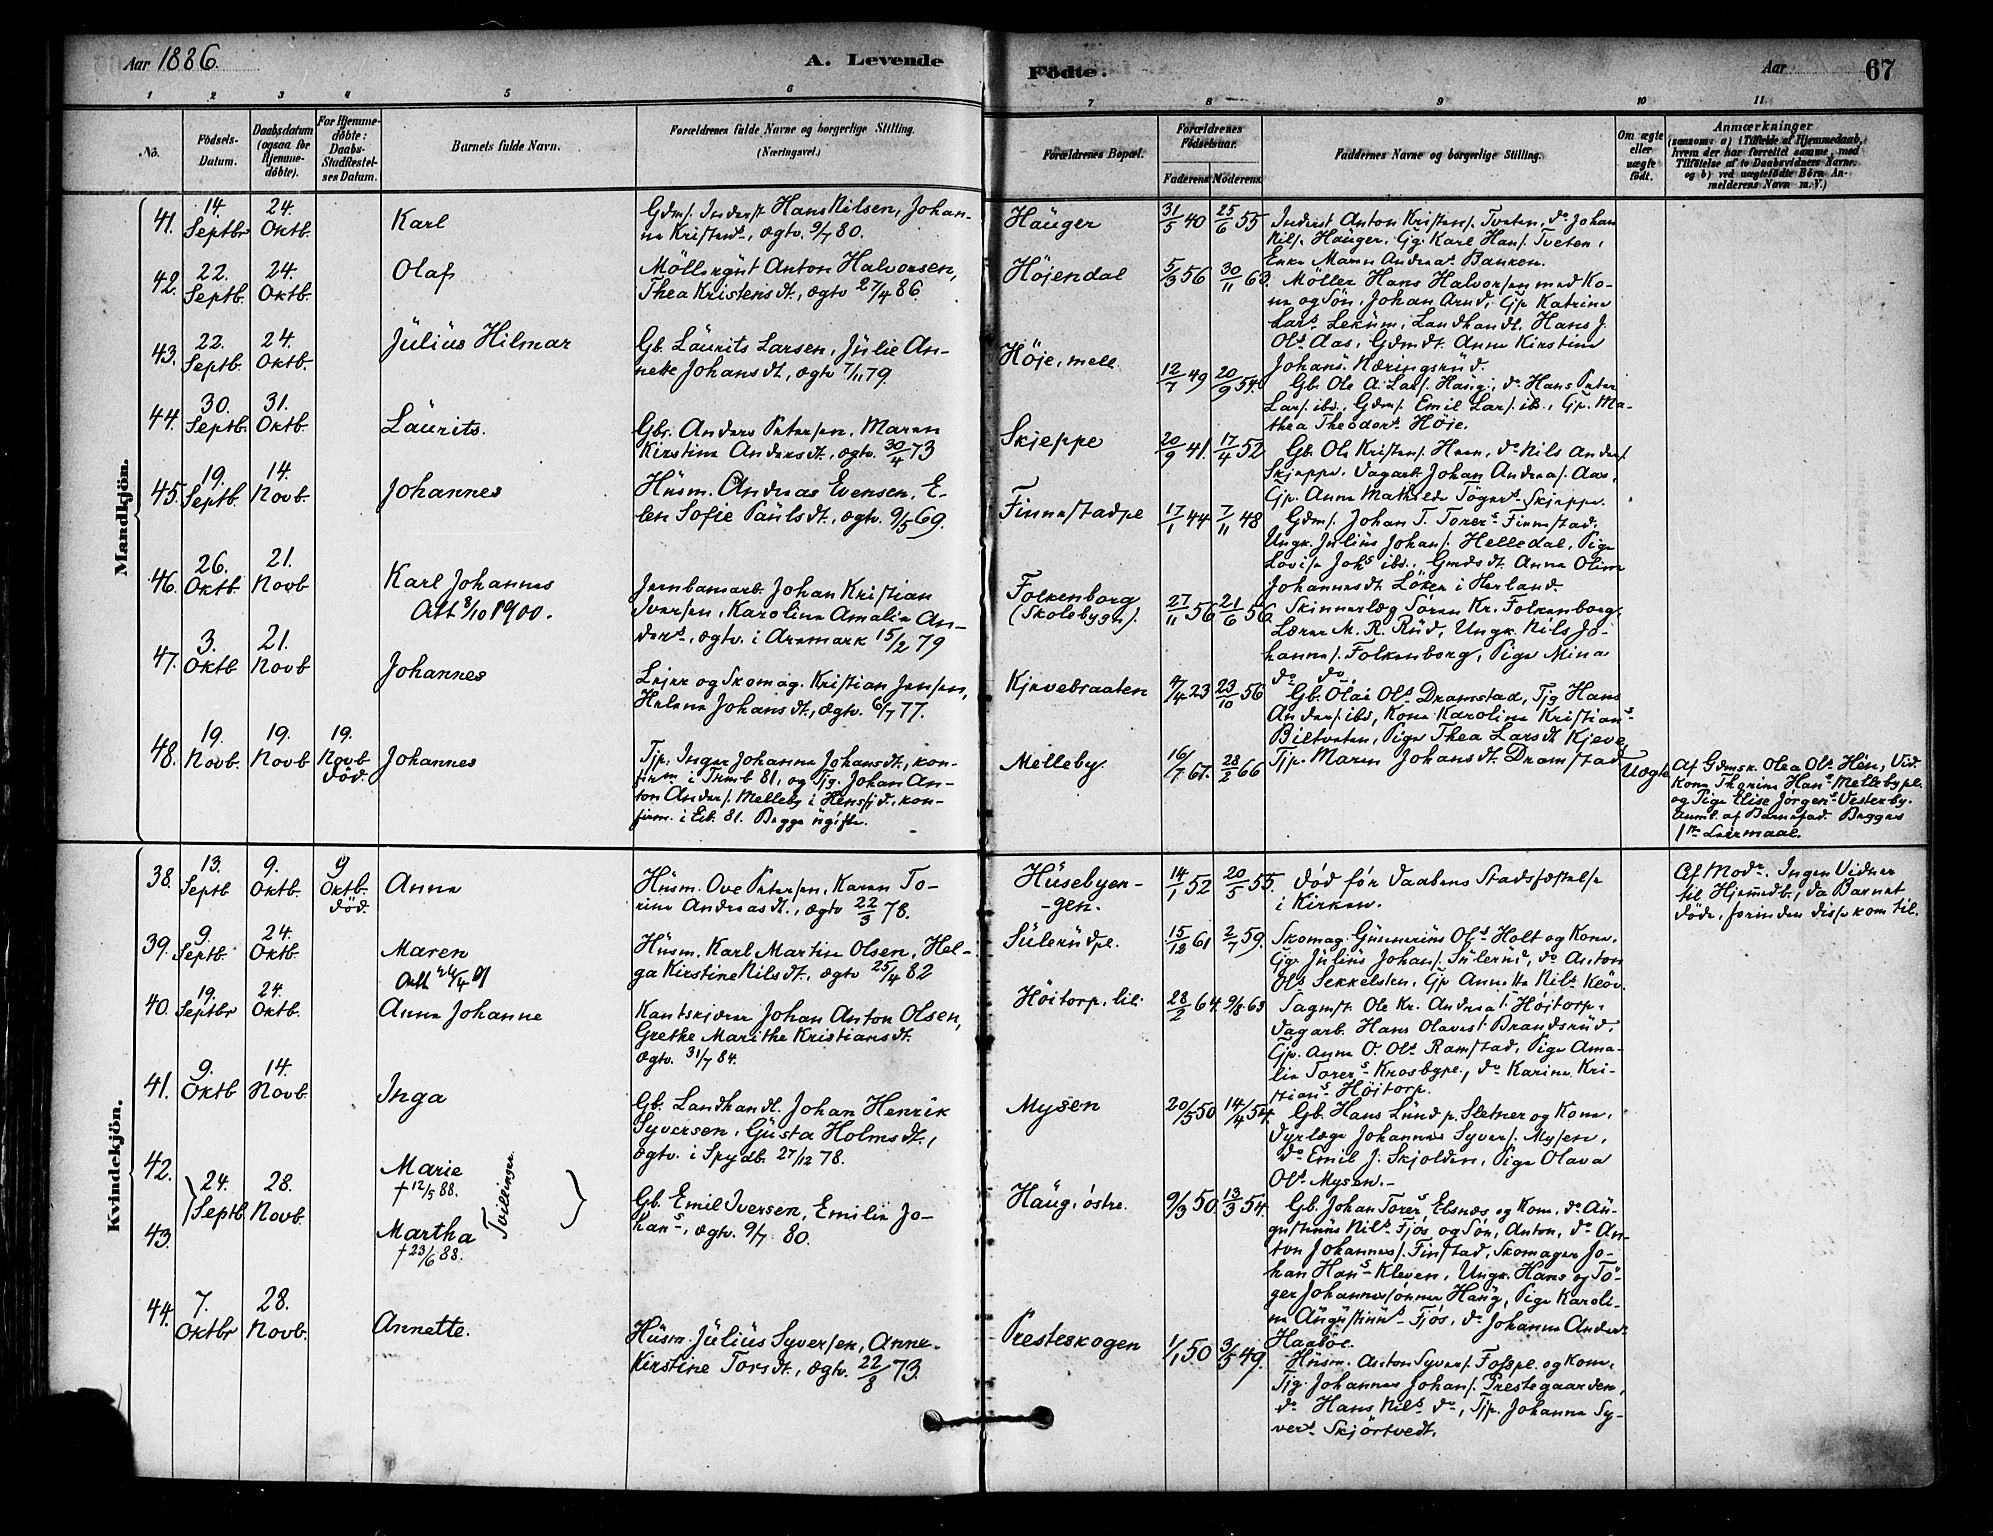 Aar 1886. A. Levende Födte. Aar 67
1 2 3 4 5 6 7 8 9 10 11
No.
Födsels-Datum.
Daabsdatum (ogsaa for Hjemmedöbte).
For Hjemmedöbte: Daabs-Stadfæstelses Datum.
Barnets fulde Navn.
Forældrenes fulde Navne og borgerlige Stilling.
(Næringsvei.)
Forældrenes Bopæl.
Forældrenes Födselsaar.
Faderens. Moderens.
Faddernes Navne og borgerlige Stilling.
Om ægte eller uægte födt.
Anmærkninger
(saasom: a) i Tilfælde af Hjemmedaab, hvem der har forrettet samme, med Tilföielse af to Daabsvidners Navne; og b) ved uægtefödte Börn Anmelderens Navn m. V.)
Mandkjön.
41. 14. Septbr 24. Oktb. Karl
Gdms. Inderst Hans Nilsen, Johanne Kristens., ægtv. 9/7 80.
Hauger 31/5 40 25/6 55
Inderst Anton Kristens. Tveten, do Johan
Nils. Hauger, Gg. Karl Hans. Tveten,
Enke Maren Andreas. Banken.
42. 22. Septb. 24. Oktb. Olaf
Möllergut Anton Halvorsen,
Thea Kristensdt., ægtv 27/4 86.
Höjendal 5/3 56 30/11 63.
Möller Hans Halvorsen med Kone
og Sön, Johan Arnd, Gp Katrine
Lars. Lekum, Landhandl. Hans J.
Ols. Aas, Gdmdt. Anne Kirstine
Johans. Næringsrud.
43. 22. Septb. 24. Oktb. Julius Hilmar
Gb. Laurits Larsen, Julie Annette
Johansdt., ægtv 7/11 79.
Höje, mell. 12/7 49 20/9 54.
Gb. Ole A. Lars. Haug, do Hans Peter
Lars. ibd., Gdms. Emil Lars. ib., Gp. Mathea
Theodors. Höje.
44. 30. Septb. 31. Oktb. Laurits.
Gbr. Anders Petersen, Maren
Kirstine Andersdt., ægtv. 30/4 73
Skjeppe 20/9 41. 17/4 52
Gb. Ole Kristens. Heen, do Nils Anders.
Skjeppe, Dagarb. Johan Andreas. Aas,
Gp. Anne Mathilde Tögers. Skjeppe.
45. 19. Septb. 14. Novb. Johannes
Husm. Andreas Evensen, Elen
Sofie Paulsdt., ægtv. 9/5 69.
Finnestadpe 17/1 44 7/11 48
Gdms. Johan T. Torers. Finnestad,
Ungk. Julius Johans. Helledal, Pige
Lovise Johs. ibd., Gmdsdt. Anne Oline
Johannesdt. Löken i Herland.
46. 26. Oktb. 21. Novb Karl Johannes
Att 3/10 1900.
Jernbanearb. Johan Kristian
Iversen, Karoline Amalie Anders.,
ægtv. i Aremark 15/2 79
Folkenborg (Skolebygn). 27/11 56 21/6 56.
Skinnerlæg Sören Kr. Folkenborg,
Lærer M. R. Rud, Ungk. Nils Johannes.
Folkenborg, Pige Mina
do do.
47. 3. Oktb 21. Novb Johannes
Lejer og Skomag. Kristian Jensen,
Helene Johansdt., ægtv. 6/7 77.
Kjevebraaten 4/4 23 23/10 56
Gb. Olai Ols. Dramstad, Tjg Hans
Anders. ibd, Kone Karoline Kristians.
Biltveten, Pige Thea Larsdt Kjeve,
Tjp. Maren Johansdt. Dramstad
48. 19. Novb. 19. Novb 19. Novb död. Johannes
Tjp. Inger Johanne Johansdt., konfirm
i Trmb 81, og Tjg. Johan Anton
Anders. Melleby i Henssjd., konfirm.
i Eib. 81. Begge ugifte.
Melleby. 16/7 67. 28/2 66
Uægte
Af Gdmsk. Olea Ols. Hen, Vid.
Kone Thorine Hans. Mellebype.
og Pige Elise Jørgens. Vesterby.
Anml. af Barnefad. Begges
1ste Leiermaal.
Kvindekjön.
38. 13. Septb 9. Oktb. 9 Oktb. död. Anne
Husm. Ove Petersen, Karen Torine
Andreasdt., ægtv 22/3 78.
Husebyengen. 14/1 52 20/5 55.
Död för Daabens Stadsfæstelse
i Kirken.
Af Modr. Ingen Vidner
til Hjemmedb., da Barnet
døde, forinden disse kom til.
39. 9. Septb. 24. Oktb. Maren
Att 26/4 01
Husm. Karl Martin Olsen, Helga
Kirstine Nilsdt., ægtv 25/4 82
Sulerudpl. 15/12 61 2/7 59.
Skomag. Gunnerius Ols. Holt og Kone,
Gg. Julius Johans. Sulerud, do Anton
Ols. Sekkelsten, Gp Annette Nils. Klöv.
40. 19. Septbr 24. Oktb. Anne Johanne
Kantskjærer Johan Anton Olsen,
Grethe Marithe Kristiansdt.
ægtv. 31/7 84.
Höitorp, lil. 28/2 64. 9/8 63
Sagmst. Ole Kr. Andreas. Höitorp,
Dagarb. Hans Olaves. Brandsrud,
Gp. Anne O. Ols. Ramstad, Pige Amalie
Torers. Krosbype., do Karine Kristians.
Höitorp.
41. 9. Oktb 14. Novb. Inga
Gb. Landhandl. Johan Henrik
Syversen, Gusta Holmsdt.,
ægtv. i Spydb. 27/12 78.
Mysen 20/5 50 14/4 54.
Gb. Hans Lund p. Sletner og Kone,
Dyrlæge Johannes Syvers. Mysen,
do Emil J. Skjolden, Pige Olava
Ols. Mysen.
42. 43. 24. Septb. 28. Novb.
Marie
† 12/5 88.
Martha
† 23/6 88.
Tvillinger.
Gb. Emil Iversen, Emilie Johans.,
ægtv. 9/7 80.
Haug, östre. 9/3 50. 13/3 54.
Gb. Johan Torers. Elsnes og Kone, do Augustinus
Nils. Fjös og Sön, Anton, do Anton
Johannes. Finstad, Skomager Johan
Hans. Kleven, Ungk. Hans og Töger
Johannessönner Haug, Pige Karoline
Augustinus. Fjös, do Johanne Anders.
Haaböl.
44. 7. Oktbr 28. Novb. Annette.
Husm. Julius Syversen, Anne
Kirstine Torsdt., ægtv. 22/8 73.
Presteskogen 1/1 50 3/5 49.
Husm. Anton Syvers. Fosspl. og Kone,
Tjg. Johannes Johans. Prestegaarden,
do Hans Nils. do, Tjp. Johanne Syvers.
Skjörtvedt.